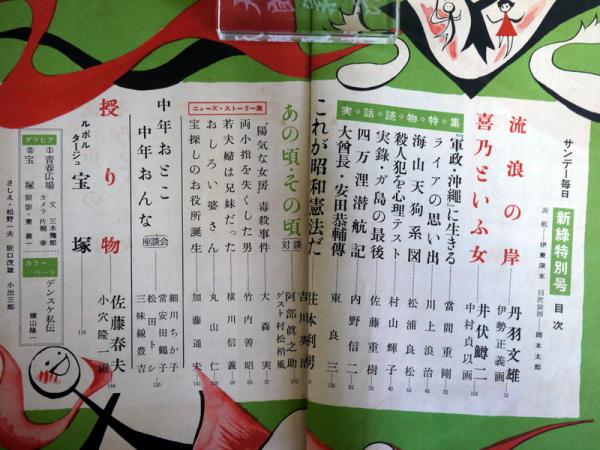 サンデー毎日
新緑特別号 目次
表紙・伊東深水 目次装画・岡本太郎
流浪の岸 丹羽文雄
伊勢正義画
喜乃といふ女 井伏鱒二
中村貞以画
実話読物特集
『軍政・沖縄』に生きる 當間重剛
ライアの思い出 川上浪治
海山天狗系図 松浦良松
殺人犯を心理テスト 村山輝子
実録・ガ島の最後 佐藤重樹
四万浬潜航記 内野信二
大酋長・安田恭輔傳 東良三
これが昭和憲法だ
あの頃・その頃 対談 吉川英治
阿部眞之助
ゲスト 村松梢風
ニューズ・ストーリー集
陽気な女房・毒殺事件 大森実
両小指を失くした男 竹内善昭
若夫婦は兄妹だった 横川信義
おしろい婆さん 丸山仁
宝探しのお役所誕生 加藤通夫
中年おとこ
中年おんな 座談会
細川ちか子
常安田鶴子
松田トシ
三味線豊吉
授り物 佐藤春夫
小穴隆一画
ルポルタージュ 宝塚
グラビア
①青春広場 文 三木鶏郎
カメラ 片桐幸
②宝塚
カラーページ
デンスケ私伝 横山隆一
さしえ・松野一夫 阪口茂雄 小出三郎